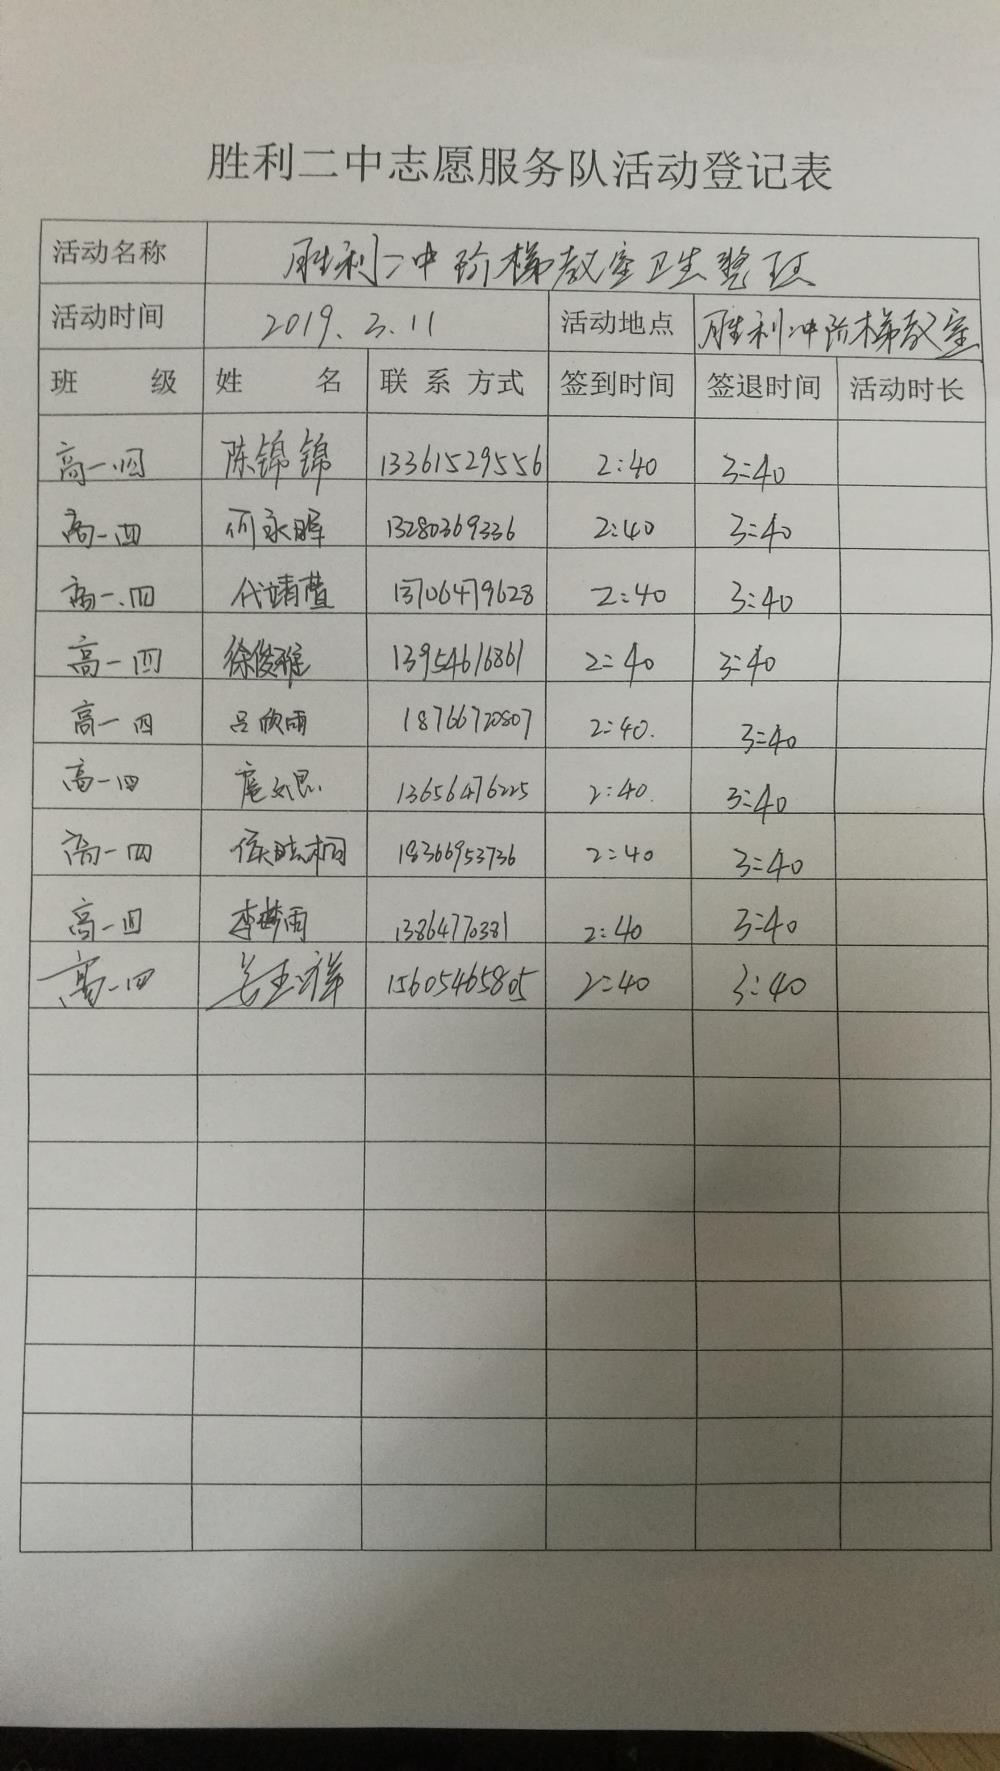 胜利二中志愿服务队活动登记表
活动名称 胜利二中阶梯教室卫生整理
活动时间 2019.3.11 活动地点 胜利二中阶梯教室
班 级 姓 名 联 系 方式 签到时间 签退时间 活动时长
高一.四 陈锦锦 13361529556 2:40 3:40
高一四 何永晖 13280369336 2:40 3:40
高一.四 代靖萱 13706479628 2:40 3:40
高一四 徐俊雅 13954616861 2:40 3:40
高一四 吕欣雨 18766720807 2:40. 3:40
高一四 13656476225 2:40. 3:40
高一四 18366953736 2:40 3:40
高一四 李梦雨 13864770381 2:40 3:40
高一四 姜玉祥 15605465805 2:40 3:40